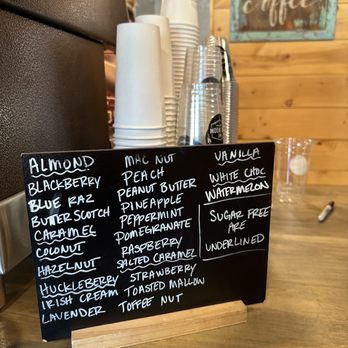 coffee
ALMOND
BLACKBERRY
BLUE RAZ
BUTTERSCOTCH
CARAMEL
COCONUT
HAZELNUT
HUCKLEBERRY
IRISH CREAM
LAVENDER
MAC NUT
PEACH
PEANUT BUTTER
PINEAPPLE
PEPPERMINT
POMEGRANATE
RASPBERRY
SALTED CARAMEL
STRAWBERRY
TOASTED MALLOW
TOFFEE NUT
VANILLA
WHITE CHOC
WATERMELON
SUGAR FREE
ARE
UNDERLINED